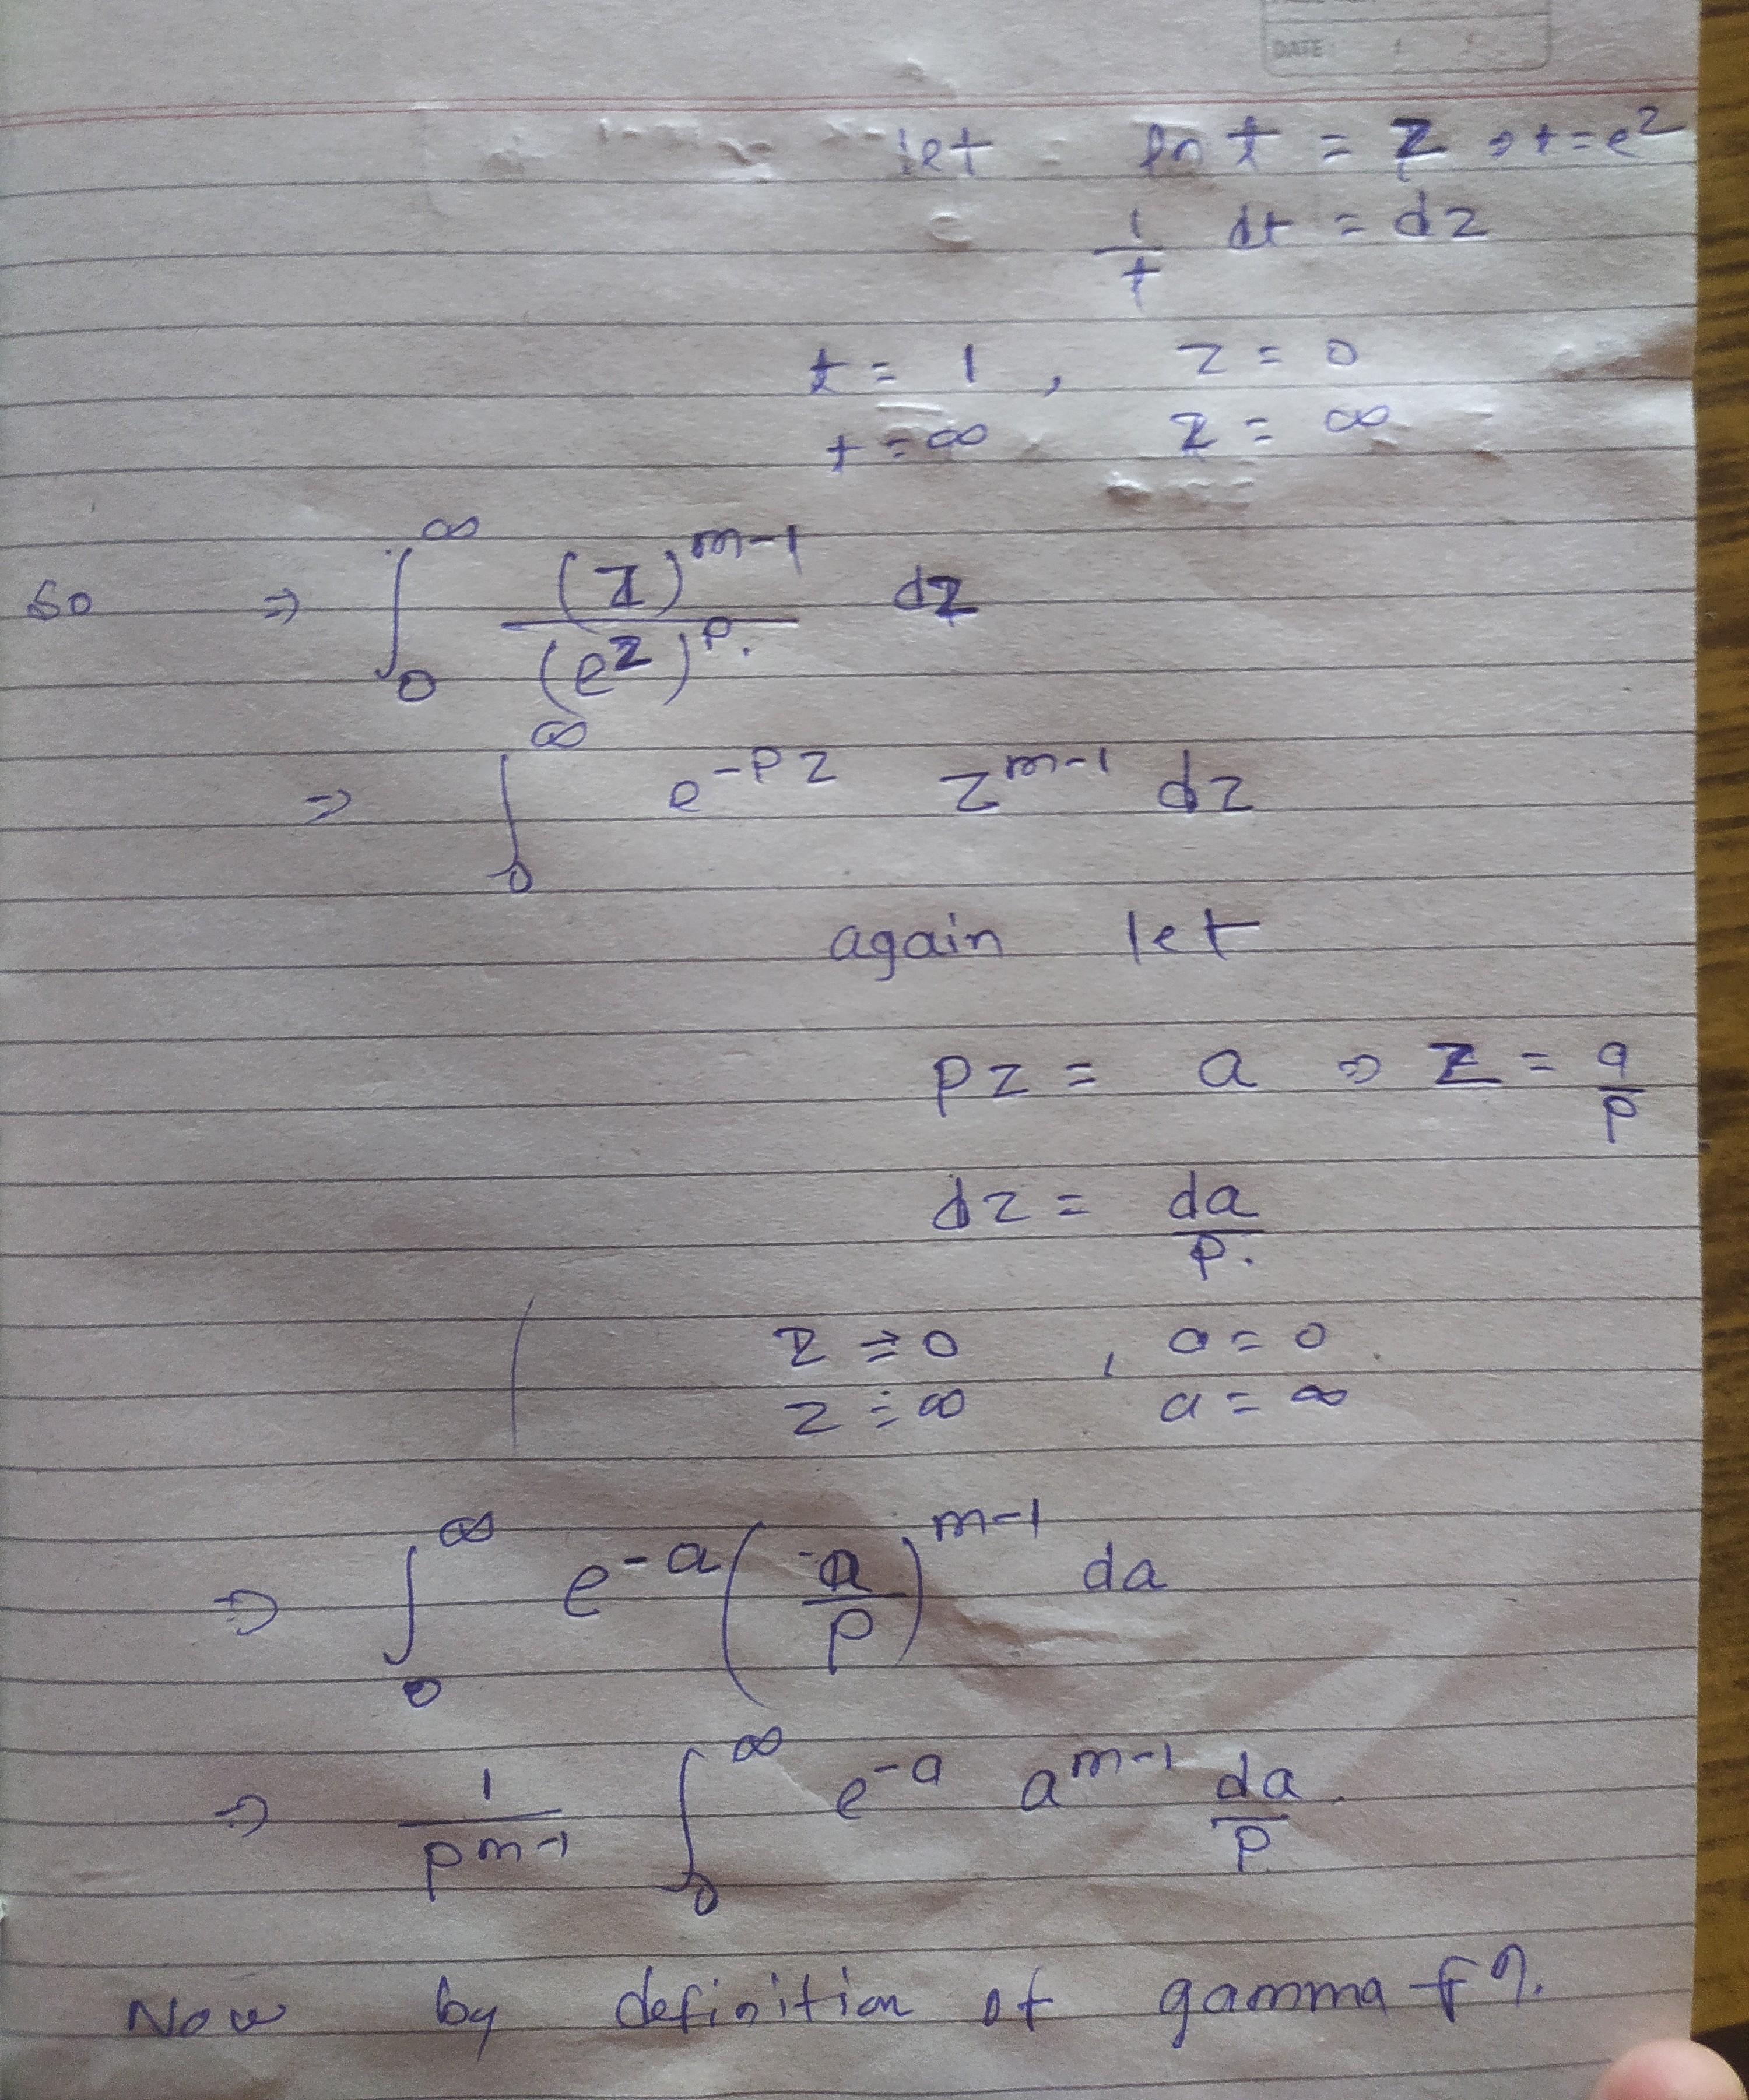 DATE:
let ln t = z ⇒ t = e^z
1/t dt = dz
t = 1 , z = 0
t = ∞ z = ∞
so ⇒ ∫_0^∞ (z)^{m-1} / (e^z)^p. dz
⇒ ∫_0^∞ e^{-pz} z^{m-1} dz
again let
pz = a ⇒ z = a/p
dz = da/p.
z = 0 , a = 0
z = ∞ a = ∞
⇒ ∫_0^∞ e^{-a} (a/p)^{m-1} da
⇒ 1/p^{m-1} ∫_0^∞ e^{-a} a^{m-1} da/p.
Now by definition of gamma fn.